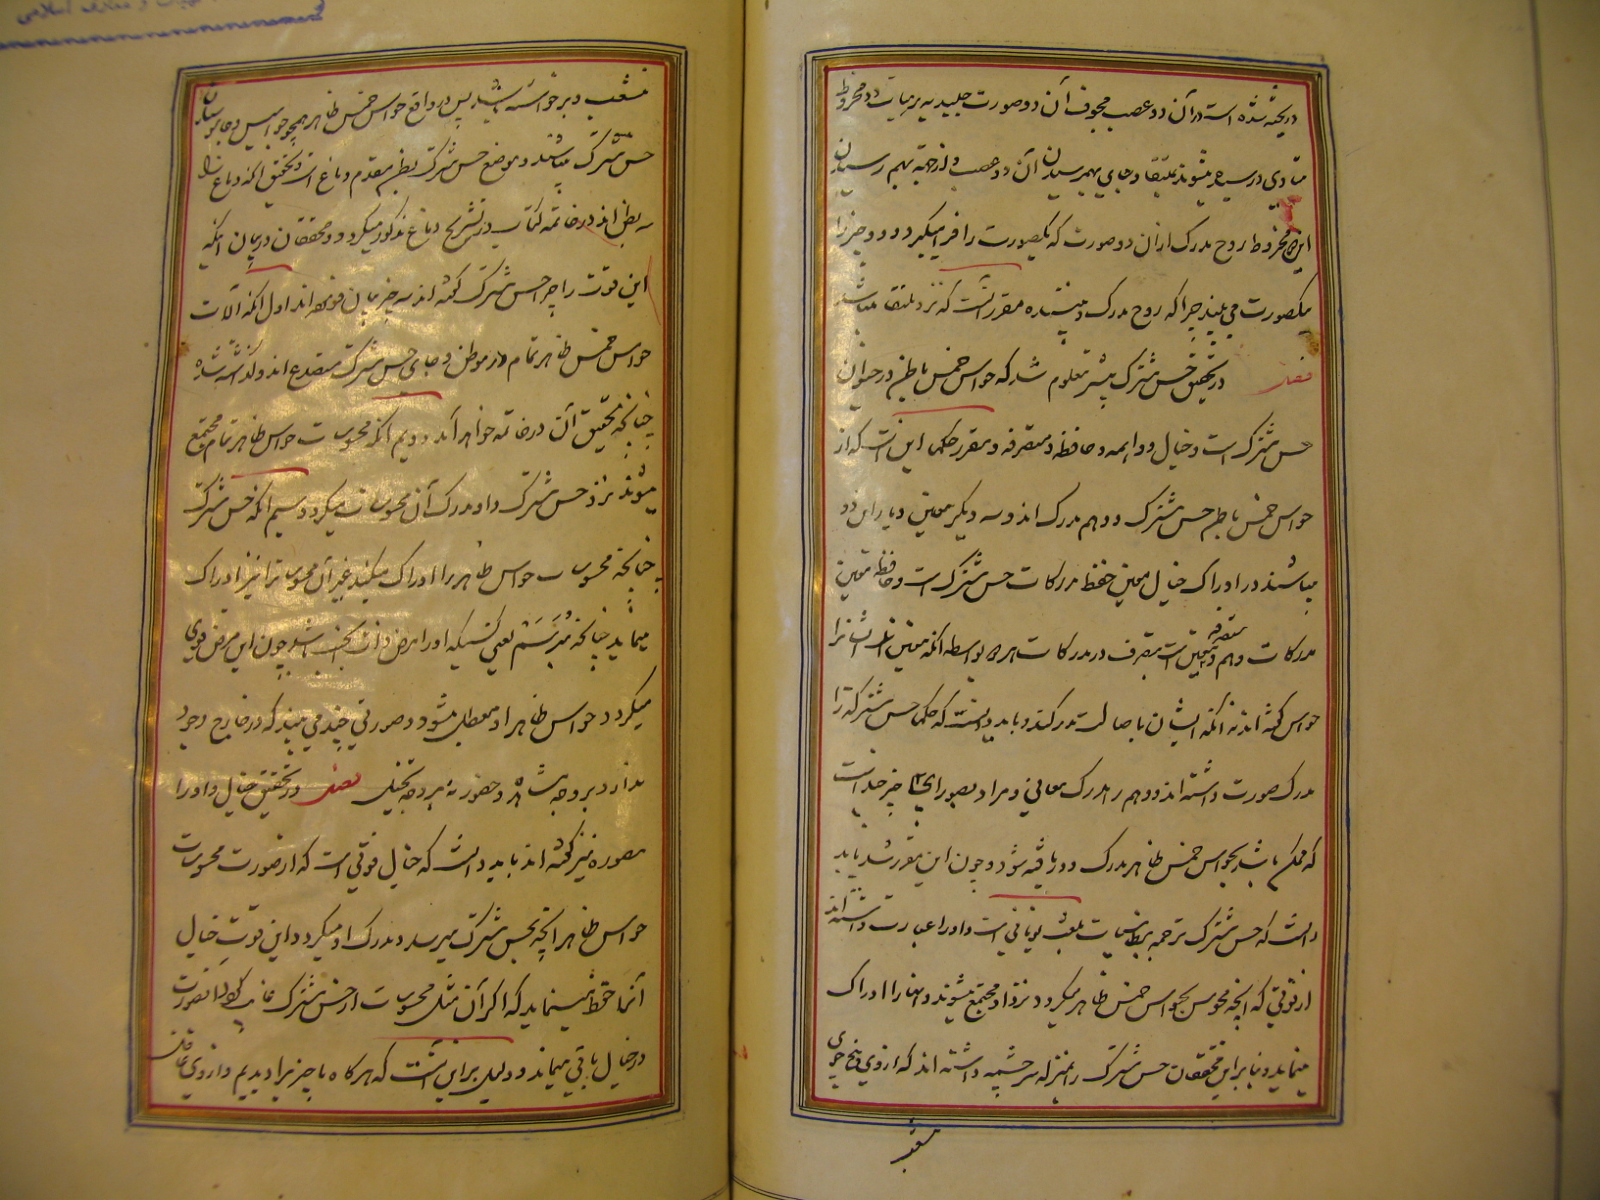 ریخته شده است در آن دو عصب مجوف آن دو صورت جلیدیه بر هیات دو مخروط
متادی در سیر میشوند بملتقا و جای بهم رسیدن آن دو عصب و از جهة بهم رسیدن
این مخروط روح مدرک از آن دو صورت که یکصورت را فرا میگیرد و دو چیز را
یکصورت می بیند چرا که روح مدرک و بیننده مقرر است که نزد ملتقا میباشد
فصل در تحقیق حس مشترک پیشتر معلوم شد که حواس خمس باطن در حیوان
حس مشترک است و خیال و واهمه و حافظه و متصرفه و مقرر حکما این است که از
حواس خمس باطن حس مشترک و وهم مدرک اند و سه دیگر معین و یار این دو
میباشند در ادراک خیال معین حفظ مدرکات حس مشترک است و حافظه معین
مدرکات وهم و متصرفه معین است بتصرف در مدرکات هر دو بواسطه آنکه معین اند ایشانرا
حواس گفته اند نه آنکه ایشان باصالت مدرکند و باید دانست که حکما حس مشترک را
مدرک صورت داشته اند و وهم را مدرک معانی و مراد بصور اینجا چیز چند است
که ممکن باشد بحواس خمس ظاهر مدرک و دریافته شود و چون این مقرر شد باید
دانست که حس مشترک ترجمه بنطاسیا ت بلغت یونانی است و او را عبارت داشته اند
از قوتی که آنچه محسوس بحواس خمس ظاهر میگردد نزد او مجتمع میشوند و آنها را ادراک
مینماید و بنا بر این محققان حس مشترک را بمنزله سرچشمه داشته اند که از وی پنج جوی
منشعب
منشعب و برخواسته باشد پس در واقع حواس خمس ظاهر همچو جواسیس و جاسوسان
حس مشترک میباشند و موضع حس مشترک بطن مقدم دماغ است و تحقیق آنکه دماغ را
سه بطن اند در خاتمه کتاب در تشریح دماغ مذکور میگردد و محققان در بیان آنکه
این قوت را چرا حس مشترک گفته اند سه چیز بیان فرموده اند اول آنکه آلات
حواس خمس ظاهر تمام در موطن و جای حس مشترک منصدع اند و گذاشته شده
چنانچه تحقیق آن در خاتمه خواهد آمد دویم آنکه محسوسات حواس ظاهر تمام مجتمع
میشوند نزد حس مشترک و او مدرک آن محسوسات میگردد سیم آنکه حس مشترک
چنانچه محسوسات حواس ظاهر را ادراک میکند غیر آن محسوسات را نیز ادراک
مینماید چنانکه مبرسم یعنی کسیکه او را مرض ذات الجنب باشد چون این مرض قوی
میگردد حواس ظاهر او معطل میشود و صورتی چند می بیند که در خارج وجود
ندارد بر وجه مشاهده و حضور نه بر وجه تخیل فصل در تحقیق خیال و او را
مصوره نیز گفته اند باید دانست که خیال قوتی است که از صورت محسوسات
حواس ظاهر آنچه بحس مشترک میرسد و مدرک او میگردد این قوت خیال
آنرا حفظ مینماید که اگر آن مثل محسوسات از حس مشترک غائب گردد آن صورت
در خیال باقی میماند و دلیل بر این آنست که هرگاه ما چیز را دیدیم و از وی غافل